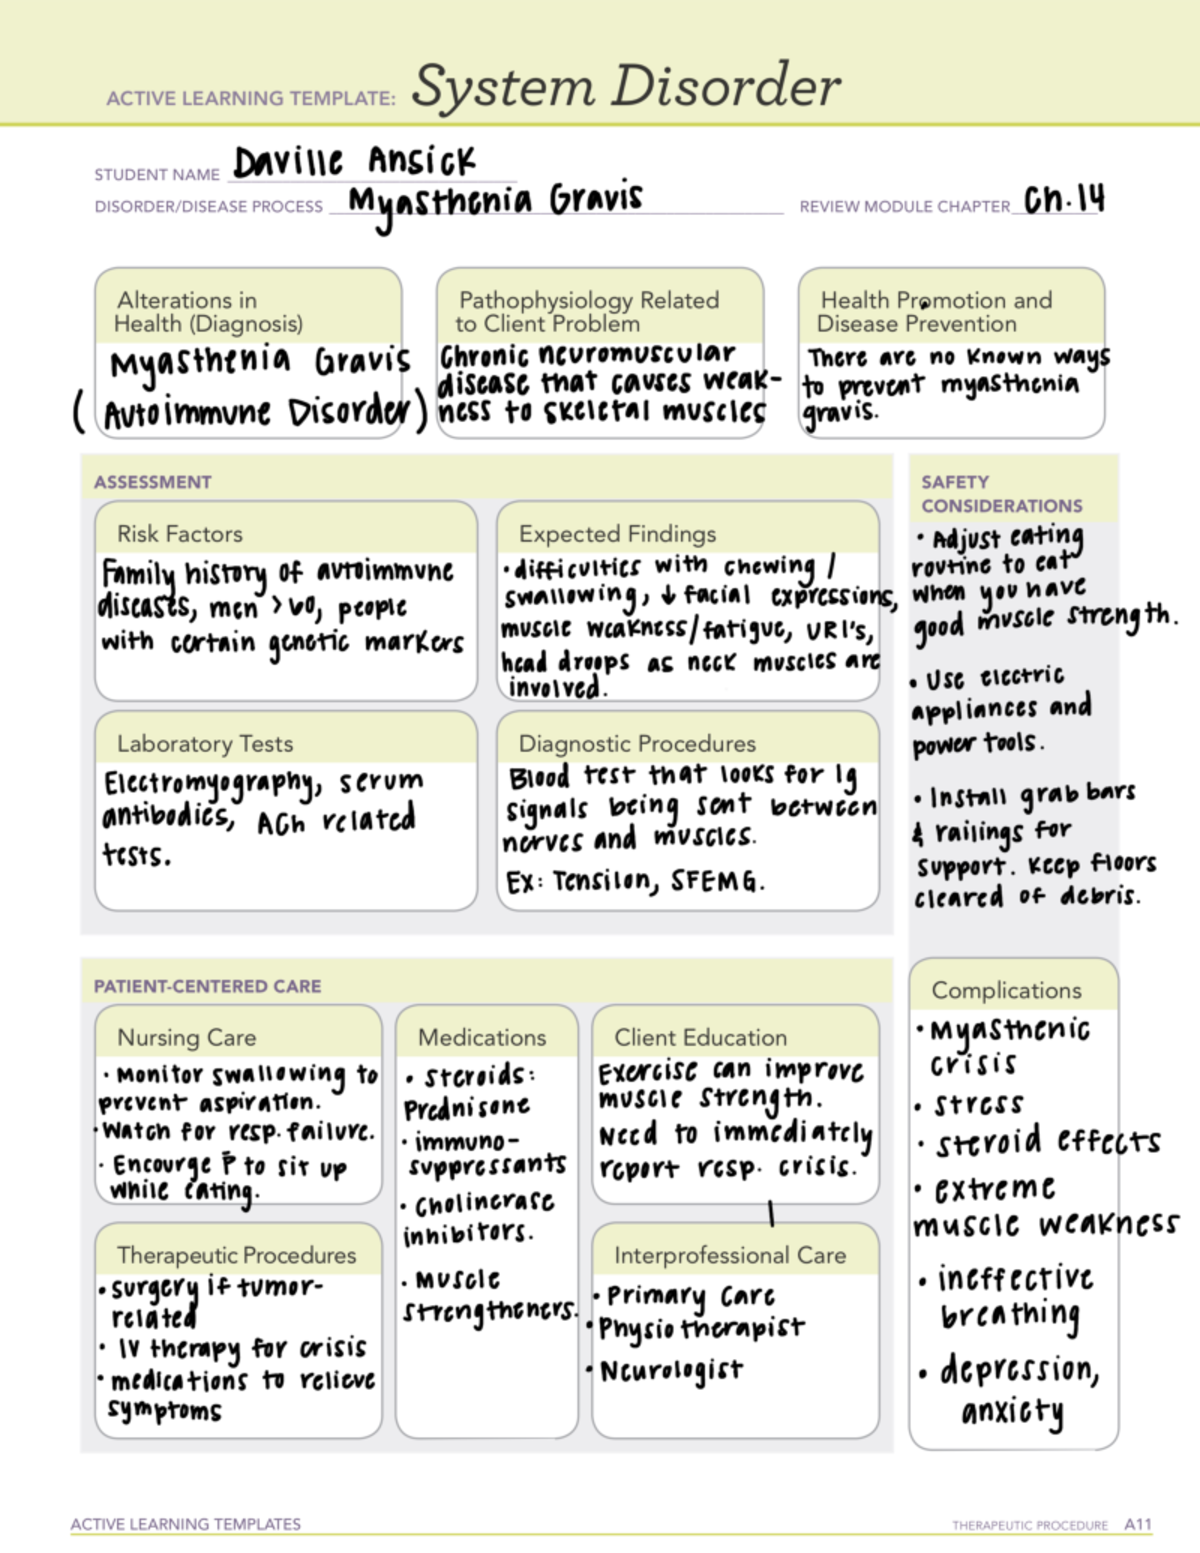 ACTIVE LEARNING TEMPLATE: System Disorder
STUDENT NAME Daville Ansick
DISORDER/DISEASE PROCESS Myasthenia Gravis REVIEW MODULE CHAPTER Ch. 14
Alterations in
Health (Diagnosis)
Myasthenia Gravis
(Autoimmune Disorder)
Pathophysiology Related
to Client Problem
Chronic neuromuscular
disease that causes weak-
ness to skeletal muscles
Health Promotion and
Disease Prevention
There are no known ways
to prevent myasthenia
gravis.
ASSESSMENT
Risk Factors
Family history of autoimmune
diseases, men >60, people
with certain genetic markers
Expected Findings
• difficulties with chewing /
swallowing, ↓ facial expressions,
muscle weakness/fatigue, URI's,
head droops as neck muscles are
involved.
Laboratory Tests
Electromyography, serum
antibodies, ACh related
tests.
Diagnostic Procedures
Blood test that looks for Ig
signals being sent between
nerves and muscles.
Ex: Tensilon, SFEMG.
SAFETY
CONSIDERATIONS
• Adjust eating
routine to eat
when you have
good muscle strength.
• Use electric
appliances and
power tools.
• Install grab bars
& railings for
support. Keep floors
cleared of debris.
PATIENT-CENTERED CARE
Nursing Care
• Monitor swallowing to
prevent aspiration.
• Watch for resp. failure.
• Encourge p̄ to sit up
while eating.
Medications
• Steroids:
Prednisone
• immuno-
suppressants
• Cholinerase
inhibitors.
• Muscle
strengtheners.
Client Education
Exercise can improve
muscle strength.
Need to immediately
report resp. crisis.
Therapeutic Procedures
• surgery if tumor-
related
• IV therapy for crisis
• medications to relieve
symptoms
Interprofessional Care
• Primary Care
• Physio therapist
• Neurologist
Complications
• Myasthenic
crisis
• stress
• steroid effects
• extreme
muscle weakness
• ineffective
breathing
• depression,
anxiety
ACTIVE LEARNING TEMPLATES THERAPEUTIC PROCEDURE A11